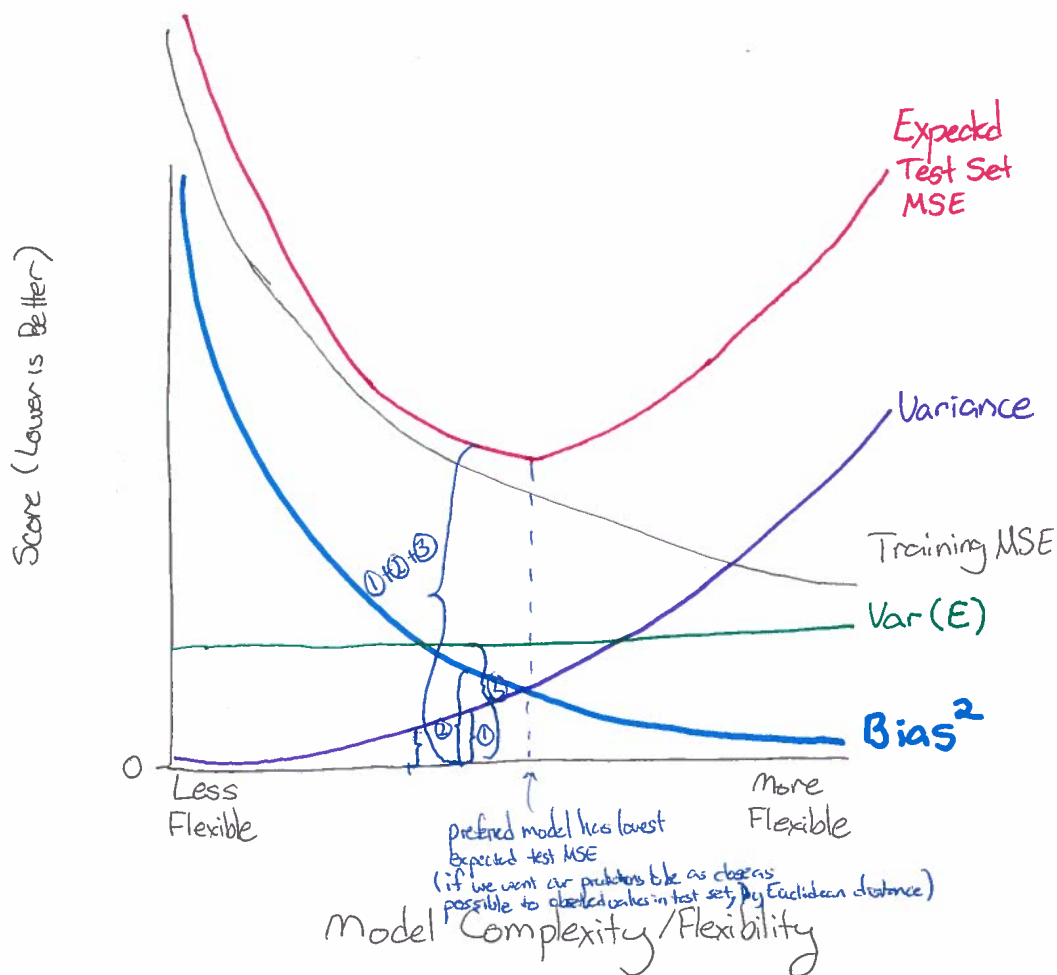 Expected
Test Set
MSE
Score (Lower is Better)
Variance
Training MSE
①+②+③
Var(E)
③
②
①
Bias²
0
Less
Flexible
More
Flexible
preferred model has lowest
expected test MSE
(if we want our predictions to be as close as
possible to observed values in test set, by Euclidean distance)
Model Complexity/Flexibility